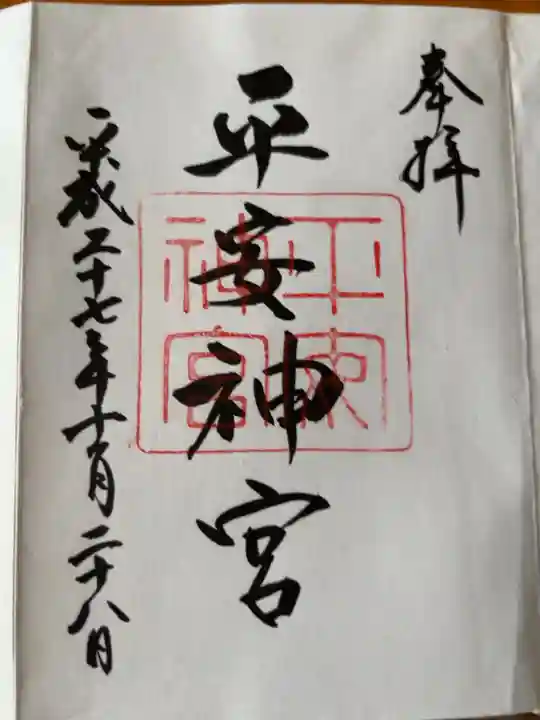 奉拝
平安神宮
平成二十七年十月二十八日